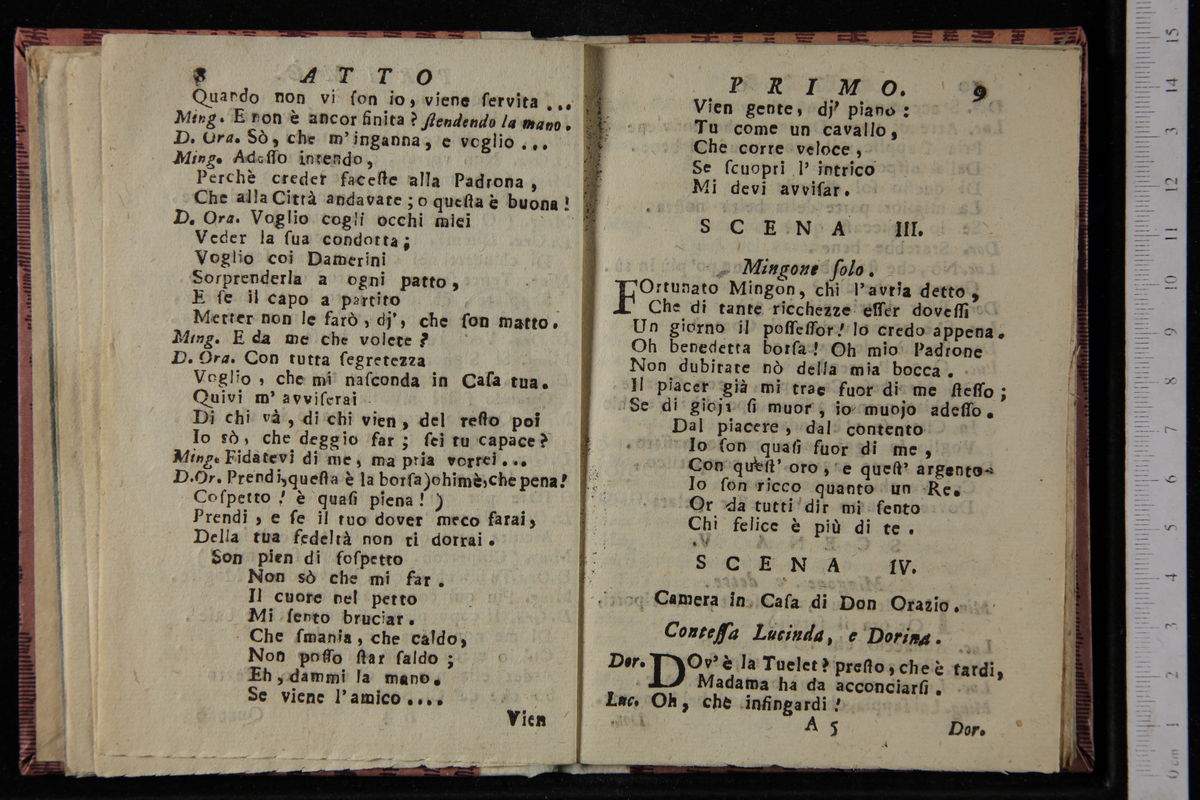 8 ATTO
Quando non vi ſon io, viene ſervita ...
Ming. E non è ancor finita? ſtendendo la mano.
D. Ora. Sò, che m'inganna, e voglio ...
Ming. Adeſſo intendo,
Perchè creder faceſte alla Padrona,
Che alla Città andavate; o queſta è buona!
D. Ora. Voglio cogli occhi miei
Veder la ſua condotta;
Voglio coi Damerini
Sorprenderla a ogni patto,
E ſe il capo a partito
Metter non le farò, dj', che ſon matto.
Ming. E da me che volete?
D. Ora. Con tutta ſegretezza
Voglio, che mi naſconda in Caſa tua.
Quivi m' avviſerai
Di chi và, di chi vien, del reſto poi
Io sò, che deggio far; ſei tu capace?
Ming. Fidatevi di me, ma pria vorrei...
D.Or. Prendi, queſta è la borſa) ohimè, che pena!
Coſpetto! è quaſi piena! )
Prendi, e ſe il tuo dover meco farai,
Della tua fedeltà non ti dorrai.
Son pien di ſoſpetto
Non sò che mi far.
Il cuore nel petto
Mi ſento bruciar.
Che ſmania, che caldo,
Non poſſo ſtar ſaldo;
Eh, dammi la mano.
Se viene l'amico....
Vien
PRIMO. 9
Vien gente, dj' piano:
Tu come un cavallo,
Che corre veloce,
Se ſcuopri l' intrico
Mi devi avviſar.
SCENA III.
Mingone ſolo.
FOrtunato Mingon, chi l'avria detto,
Che di tante ricchezze eſſer doveſſi
Un giorno il poſſeſſor! lo credo appena.
Oh benedetta borſa! Oh mio Padrone
Non dubitate nò della mia bocca.
Il piacer già mi trae fuor di me ſteſſo;
Se di gioja ſi muor, io muojo adeſſo.
Dal piacere, dal contento
Io ſon quaſi fuor di me,
Con queſt' oro, e queſt' argento
Io ſon ricco quanto un Re.
Or da tutti dir mi ſento
Chi felice è più di te.
SCENA IV.
Camera in Caſa di Don Orazio.
Conteſſa Lucinda, e Dorina.
Dor. DOv'è la Tuelet? preſto, che è tardi,
Madama ha da acconciarſi.
Luc. Oh, che infingardi!
A 5 Dor.